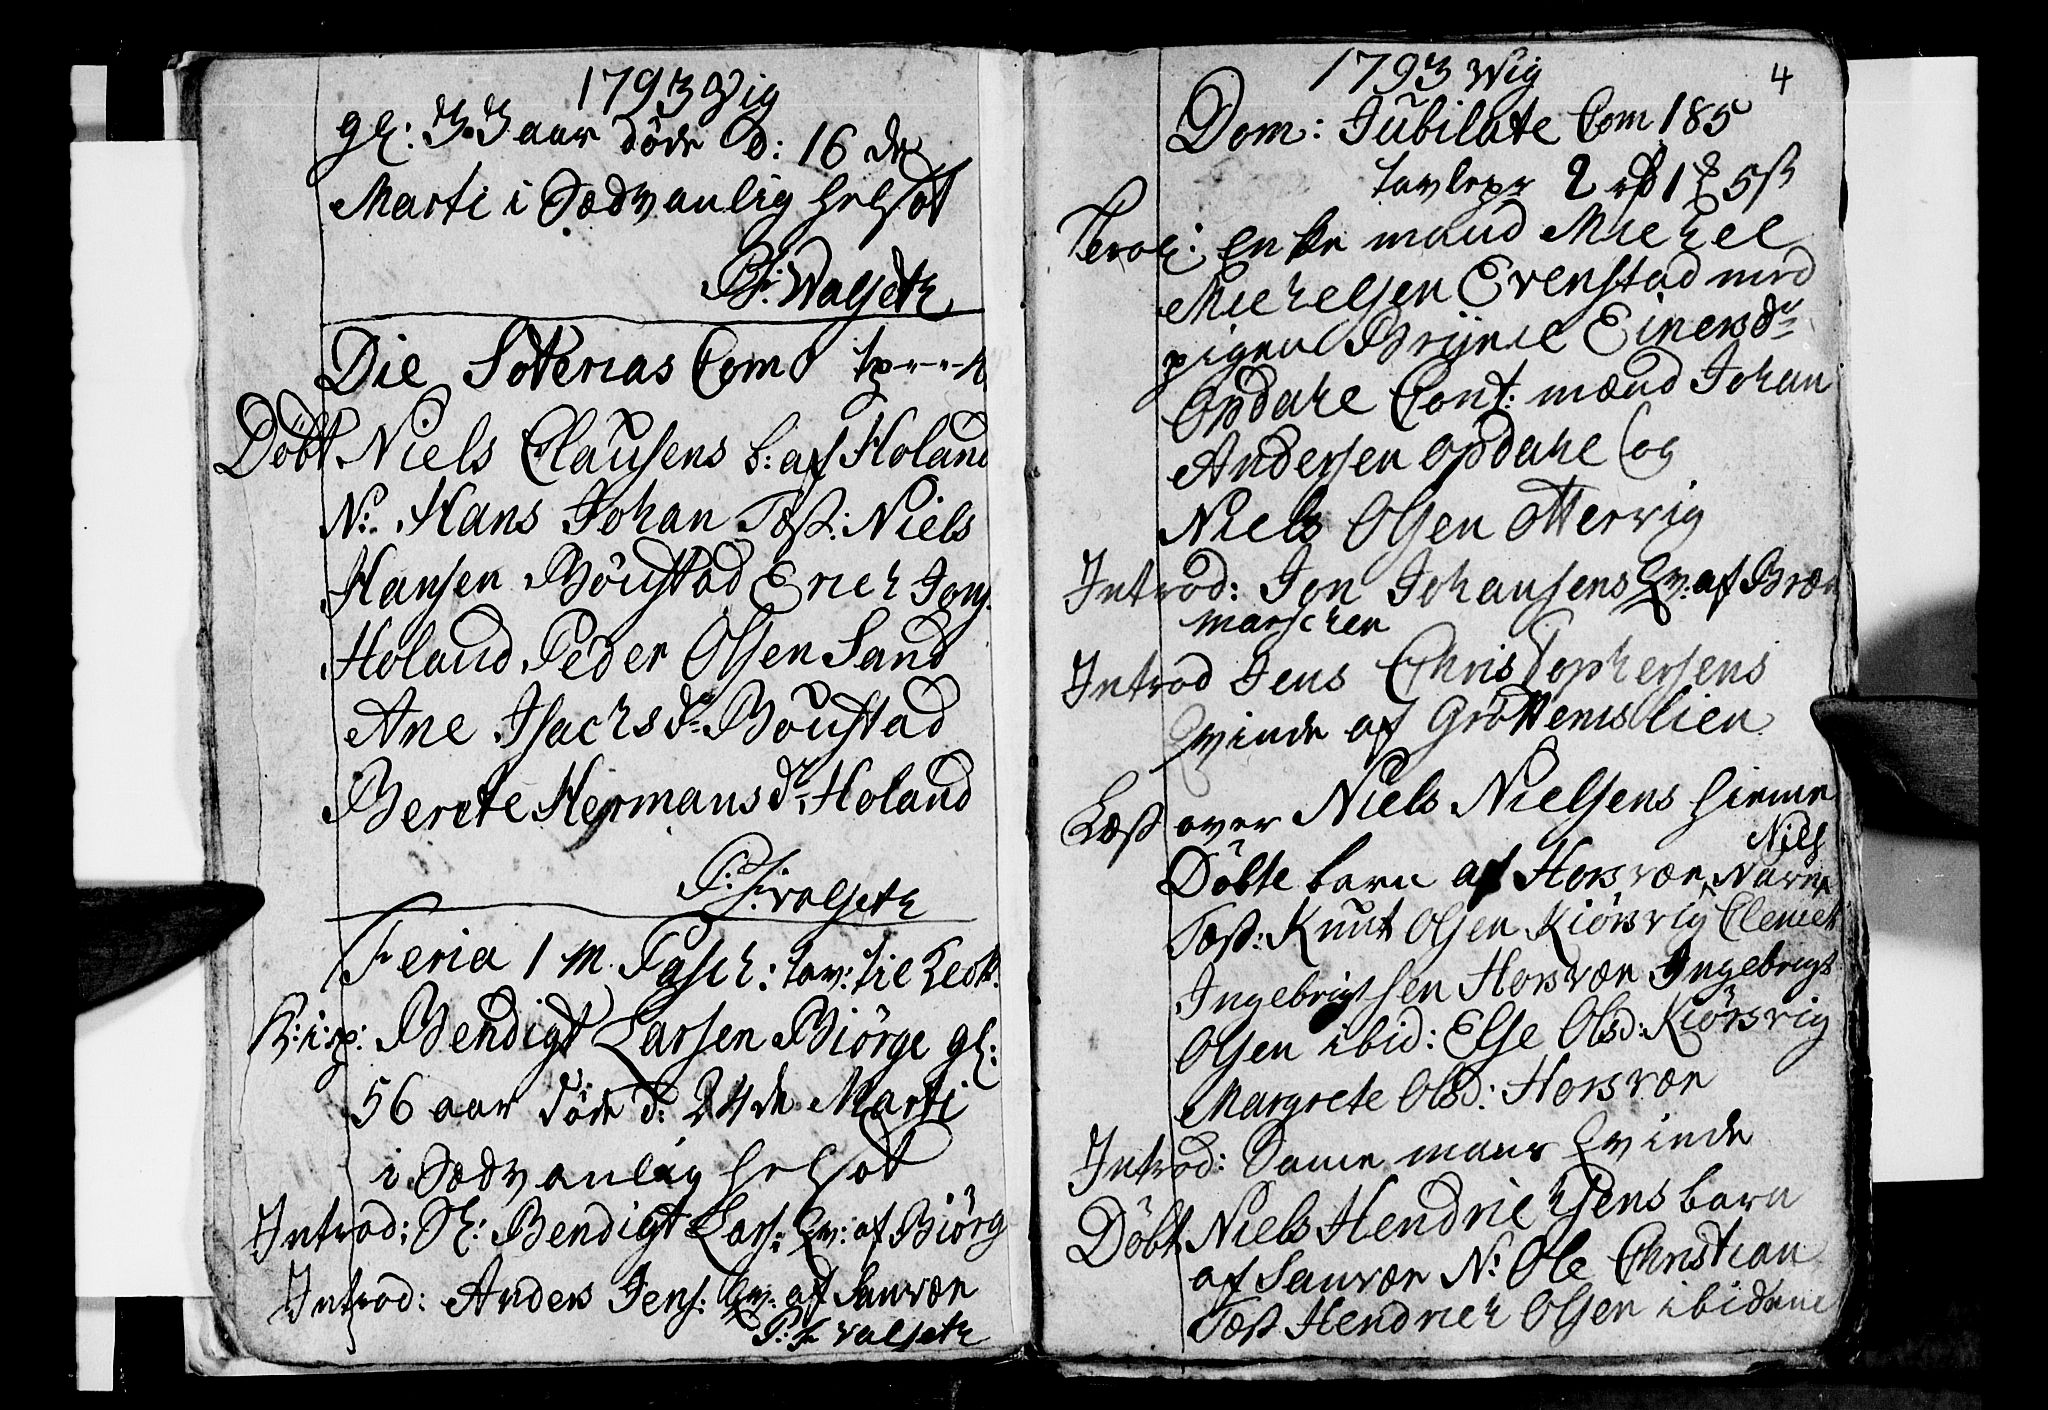 1793 Wig
gl: 33 aar döde d: 16 de
Marti i Sædvanlig helsot
P: F: Walseth
Die Soterias Com 0 tp
Döbt Niels Clausens b: af Holand
N: Hans Johan Test: Niels
Hansen Böustad Erich Jons:
Holand Peder Olsen Sand
Ane Isachs dr Böustad
Berete Hermans dr Holand
P: F: Walseth
Feria 1 m. Pasch: tav: til
K: i: p: Bendigt Larsen Biörge gl:
56 aar döde d: 24 de Marti
i Sædvanlig helsot
Introd: Sl: Bendigt Lars: qv: af Biörge
Introd: Anders Jens: qv: af Sauvær
P: F: Walseth
1793 Wig 4
Dom: Jubilate Com 185
tavlepe 2 rd 1 5 s
Trol: Enke mand Michel
Michelsen Evenstad med
pigen Einers dr
Opdahl Cont: mænd Johan
Andersen Opdahl og
Niels Olsen Ottervig
Introd: Jon Johansens qv: af Bræn
marschen
Introd Jens Christophersens
qvinde af Gröttemslien
Læst over Niels Nielsens hieme
Niels
Döbte barn af Horsvær, Navn
Test: Knut Olsen Kiörsvig Clemet
Ingebrigtsen Horsvær Ingebrigt
Olsen ibid: Else Olsd: Kiörsvig
Margrete Olsd: Horsvær
Introd: Same mans qvinde
Döbt Niels Hendrichsens barn
af Sauvær N: Ole Christian
Test Hendrich Olsen ibidem